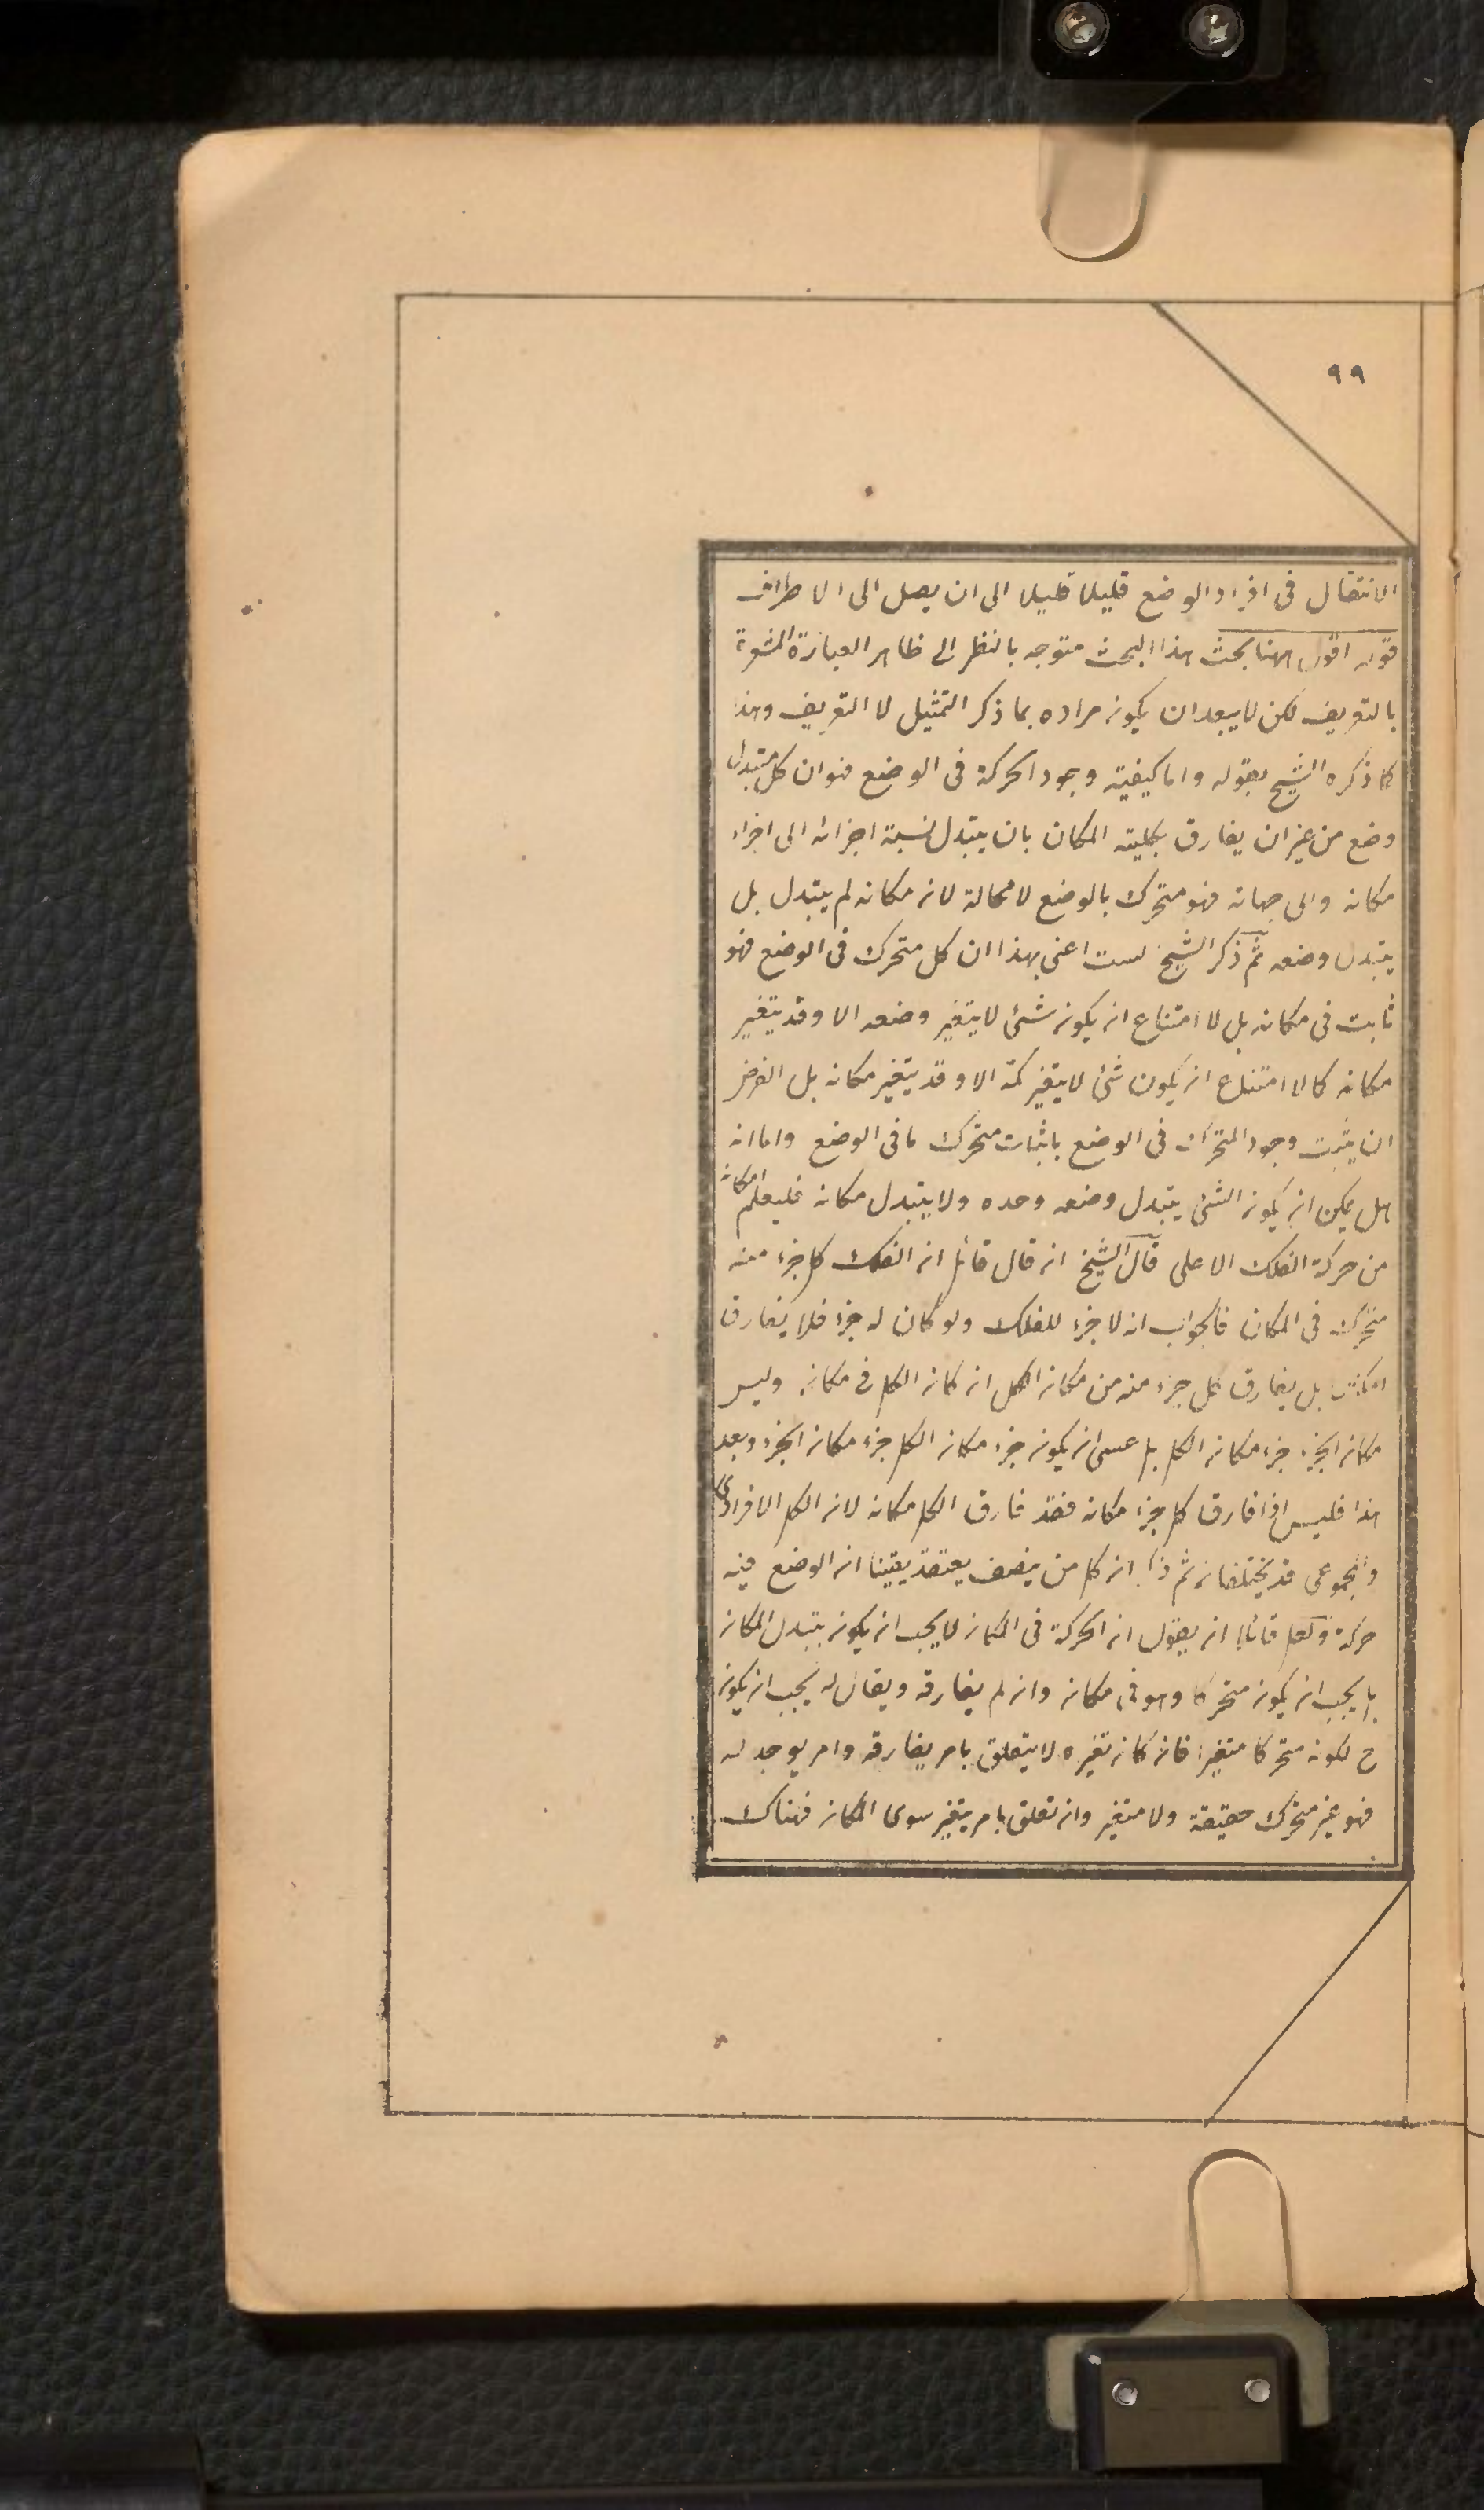 ٩٩
الانتقال فى افراد الوضع قليلا قليلا الى ان يصل الى الاطراف
قوله اقول ههنا بحث هذا البحث متوجه بالنظر الى ظاهر العبارة المشعرة
بالتعريف لكن لا يبعد ان يكون مراده بما ذكر التمثيل لا التعريف وهذا
كما ذكره الشيخ بقوله واما كيفية وجود الحركة فى الوضع فهو ان كل مستبدل
وضع من غير ان يفارق بكليته المكان بان يتبدل نسبة اجزائه الى اجزاء
مكانه والى جهاته فهو متحرك بالوضع لا محالة لان مكانه لم يتبدل بل
يتبدل وضعه ثم ذكر الشيخ لست اعنى بهذا ان كل متحرك فى الوضع فهو
ثابت فى مكانه بل لا امتناع ان يكون شئ لا يتغير وضعه الا وقد يتغير
مكانه كما لا امتناع ان يكون شئ لا يتغير كمه الا وقد يتغير مكانه بل الغرض
ان يثبت وجود المتحرك فى الوضع باثبات متحرك ما فى الوضع واما انه
هل يمكن ان يكون الشئ يتبدل وضعه وحده ولا يتبدل مكانه فليعلم امكانه
من حركة الفلك الاعلى قال الشيخ ان قال قائل ان الفلك كل جزء منه
متحرك فى المكان فالجواب انه لا جزء للفلك ولو كان له جزء فلا يفارق
امكنتها بل يفارق كل جزء منه من مكان الكل ان كان الكل فى مكان وليس
مكان الجزء جزء مكان الكل بل عسى ان يكون جزء مكان الكل جزء مكان الجزء وبعد
هذا فليس اذا فارق كل جزء مكانه فقد فارق الكل مكانه لان الكل الافرادى
والمجموعى قد يختلفان ثم ذكر ان كل من ينصف يعتقد يقينا ان الوضع فيه
حركة ولعل قائلا ان يقول ان الحركة فى المكان لا يجب ان يكون بتبدل المكان
بل يجب ان يكون متحركا وهو فى مكان وان لم يفارقه ويقال له يجب ان يكون
ح لكونه متحركا متغيرا فان كان تغيره لا يتعلق بامر يفارقه وامر يوجد له
فهو غير متحرك حقيقة ولا متغير وان تعلق بامر يتغير سوى المكان فهناك